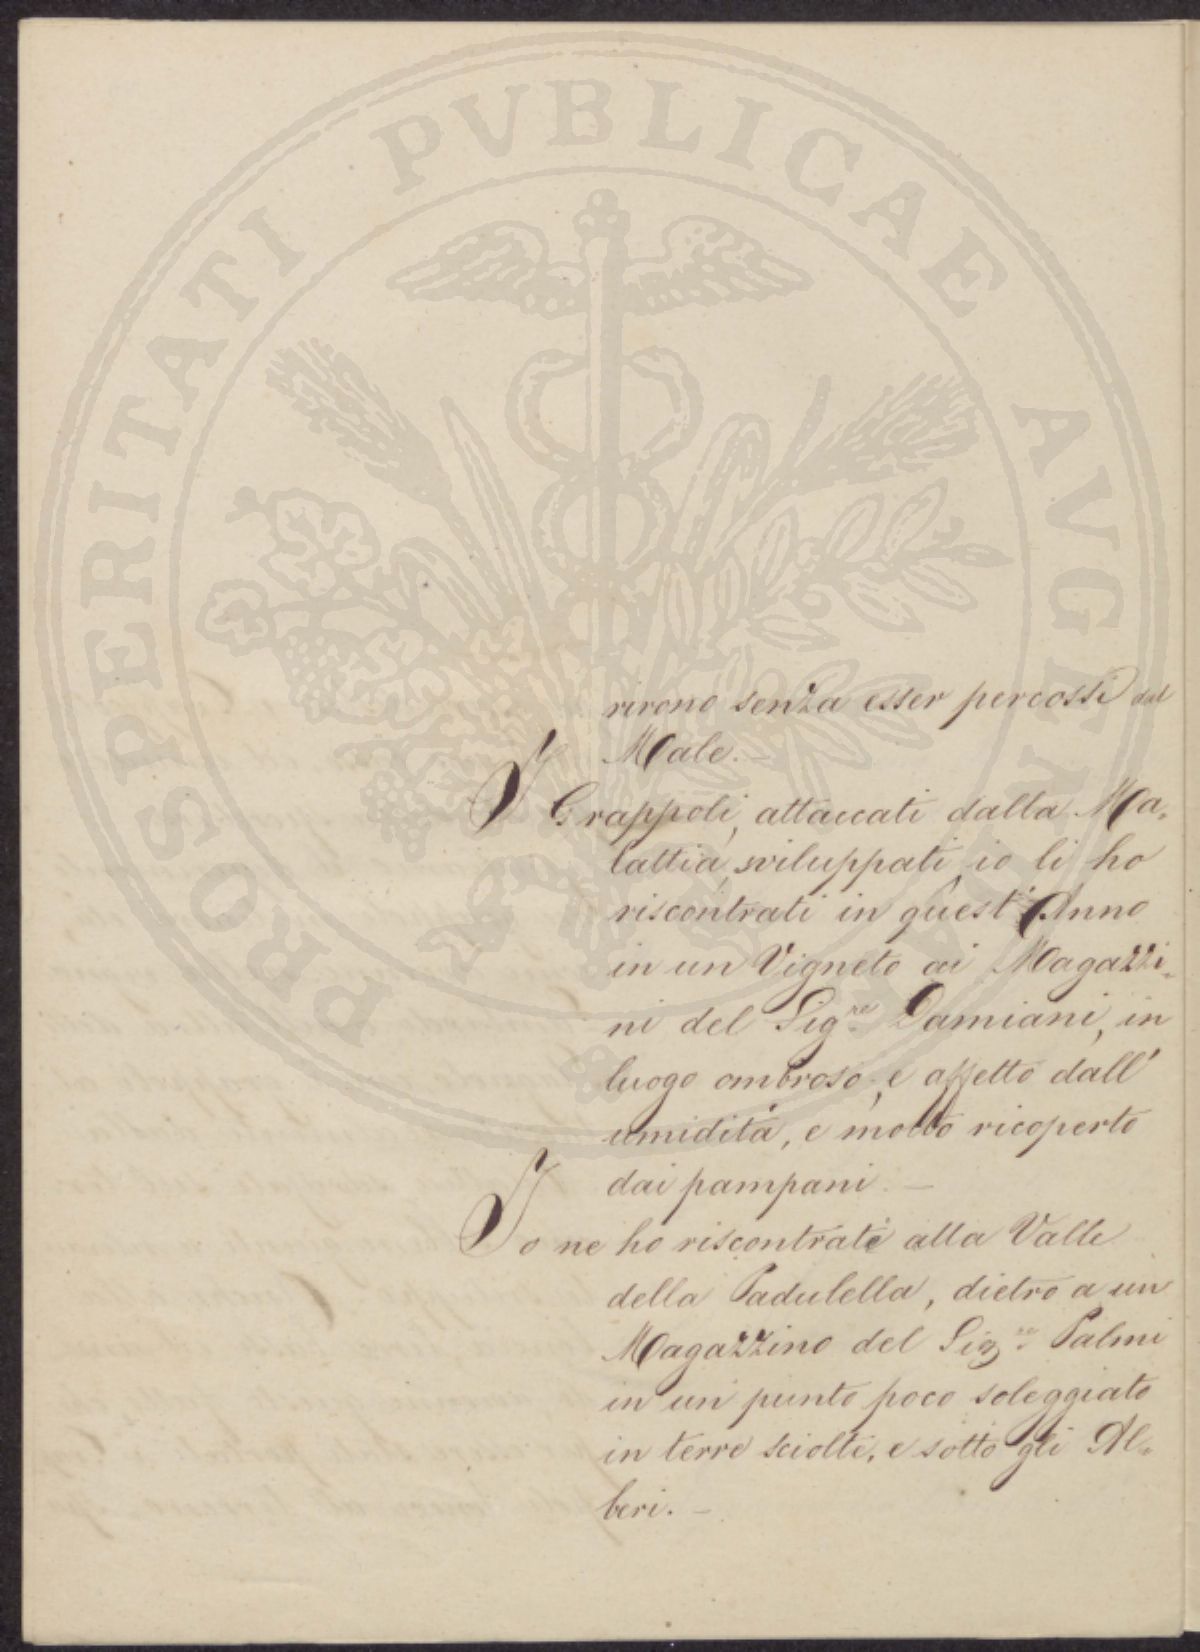 PROSPERITATI PVBLICAE AVGENDAE
rirono senza esser percossi dal
Male. —
I Grappoli, attaccati dalla Ma=
lattia, sviluppati, io li ho
riscontrati in quest'Anno
in un Vigneto ai Magazzi=
ni del Sig.re Damiani, in
luogo ombroso, e affetto dall'
umidità, e molto ricoperto
dai pampani. —
Io ne ho riscontrati alla Valle
della Padulella, dietro a un
Magazzino del Sig.re Palmi
in un punto poco soleggiato
in terre sciolte, e sotto gli Al=
beri. —